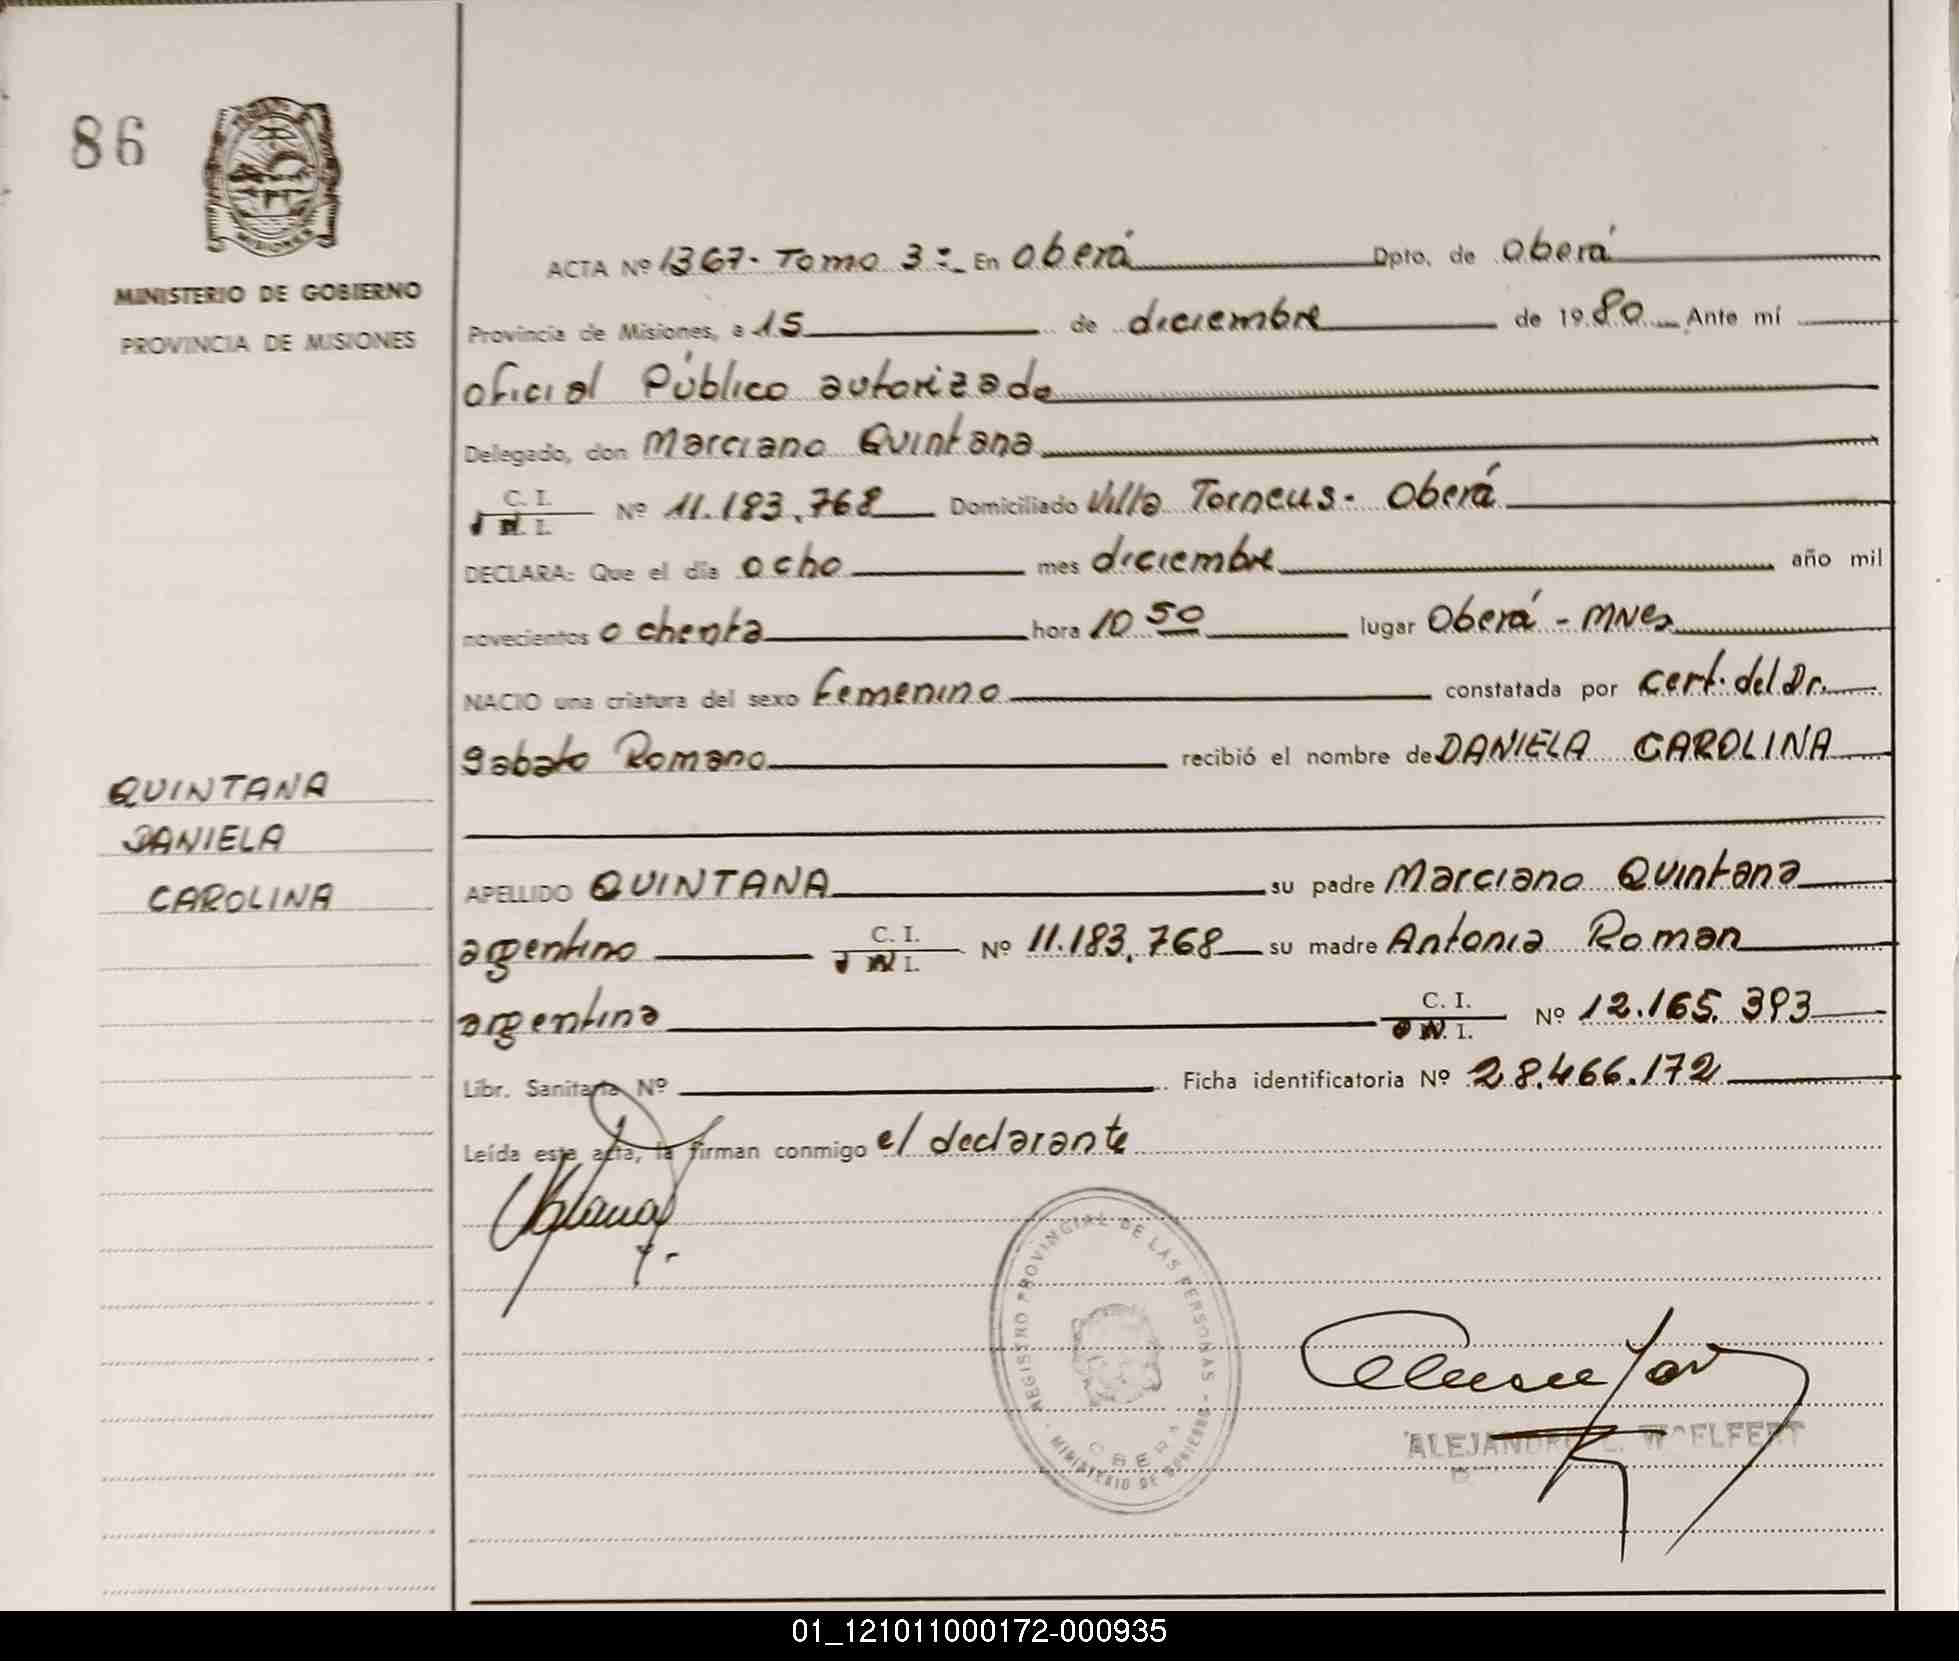 86
MISIONES
MINISTERIO DE GOBIERNO
PROVINCIA DE MISIONES
QUINTANA
DANIELA
CAROLINA
ACTA Nº 1367. Tomo 3º En Oberá Dpto. de Oberá
Provincia de Misiones, a 15 de diciembre de 1980 Ante mí
oficial Público autorizado
Delegado, don Marciano Quintana
C. I.
Nº 11.183.768 Domiciliado Villa Torneus - Oberá
DECLARA: Que el día ocho mes diciembre año mil
novecientos ochenta hora 10 50 lugar Oberá - MNes
NACIO una criatura del sexo femenino constatada por cert. del Dr.
Sabato Romano recibió el nombre de DANIELA CAROLINA
APELLIDO QUINTANA su padre Marciano Quintana
argentino C. I. Nº 11.183.768 su madre Antonia Roman
argentina C. I. Nº 12.165.393
Libr. Sanitaria Nº Ficha identificatoria Nº 28.466.172
Leída esta acta, la firman conmigo el declarante
REGISTRO PROVINCIAL DE LAS PERSONAS - MINISTERIO DE GOBIERNO
OBERA
ALEJANDRO E. WOELFERT
01_121011000172-000935